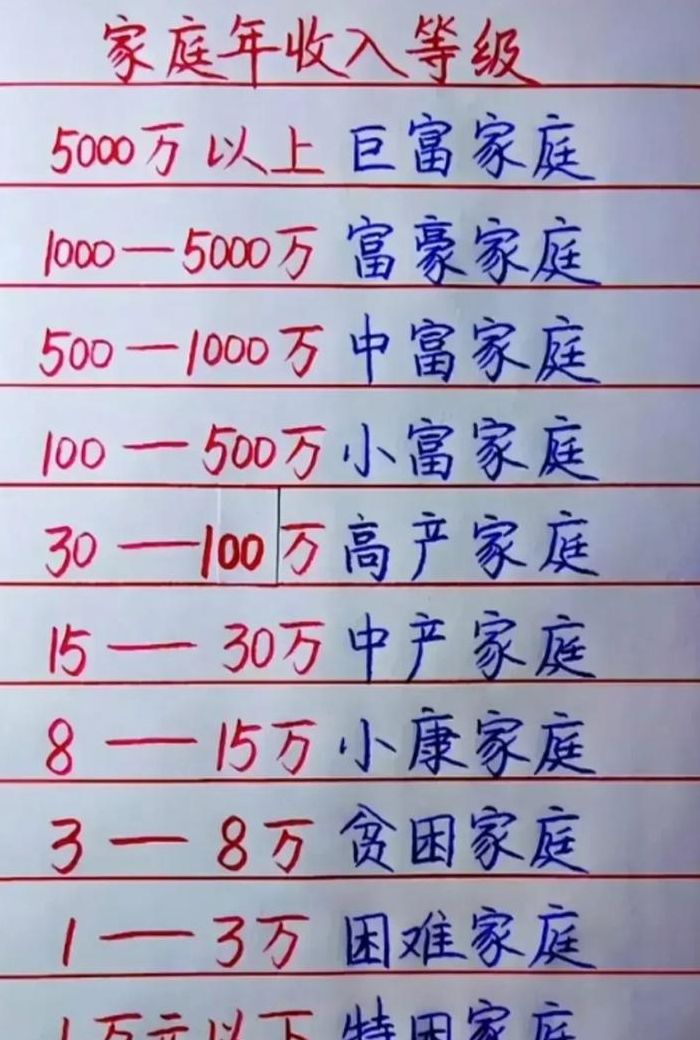 家庭年收入等级
5000万以上 巨富家庭
1000—5000万 富豪家庭
500—1000万 中富家庭
100—500万 小富家庭
30—100万 高产家庭
15—30万 中产家庭
8—15万 小康家庭
3—8万 贫困家庭
1—3万 困难家庭
1万元以下 特困家庭